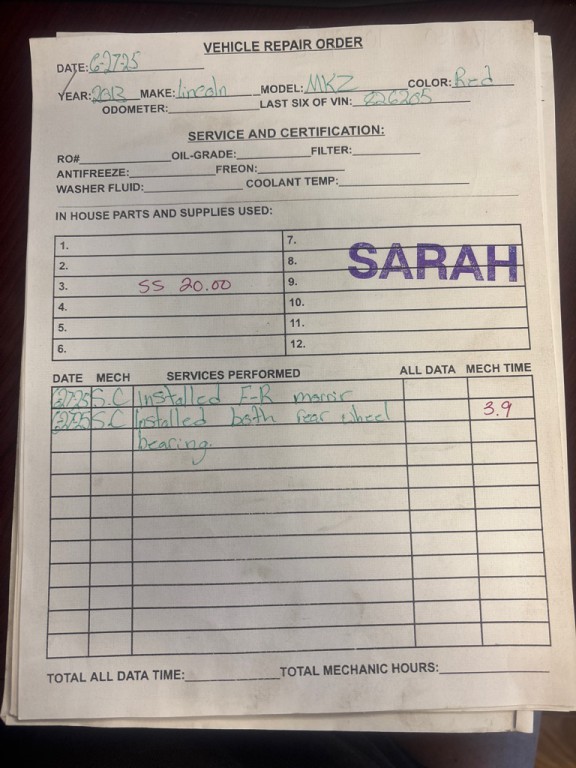 VEHICLE REPAIR ORDER
DATE: 6-27-25
YEAR: 2013 MAKE: Lincoln MODEL: MKZ COLOR: Red
ODOMETER: LAST SIX OF VIN: 826205
SERVICE AND CERTIFICATION:
RO# OIL-GRADE: FILTER:
ANTIFREEZE: FREON:
WASHER FLUID: COOLANT TEMP:
IN HOUSE PARTS AND SUPPLIES USED:
1. 7.
2. 8. SARAH
3. SS 20.00 9.
4. 10.
5. 11.
6. 12.
DATE MECH SERVICES PERFORMED ALL DATA MECH TIME
62725 S.C Installed F-R
62725 S.C Installed both rear wheel 3.9
bearing.
TOTAL ALL DATA TIME: TOTAL MECHANIC HOURS: